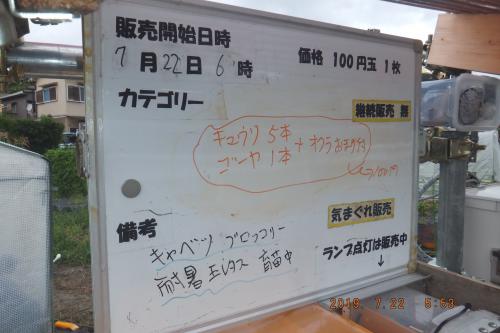 販売開始日時
7月22日6時
価格 100円玉 1枚
カテゴリー
継続販売 無
キュウリ 5本
ゴーヤ 1本
+ オクラおまけ付
気まぐれ販売
備考
キャベツ ブロッコリー
耐暑 レタス 育苗中
ランプ点灯は販売中
↓
2019. 7.22 5:53